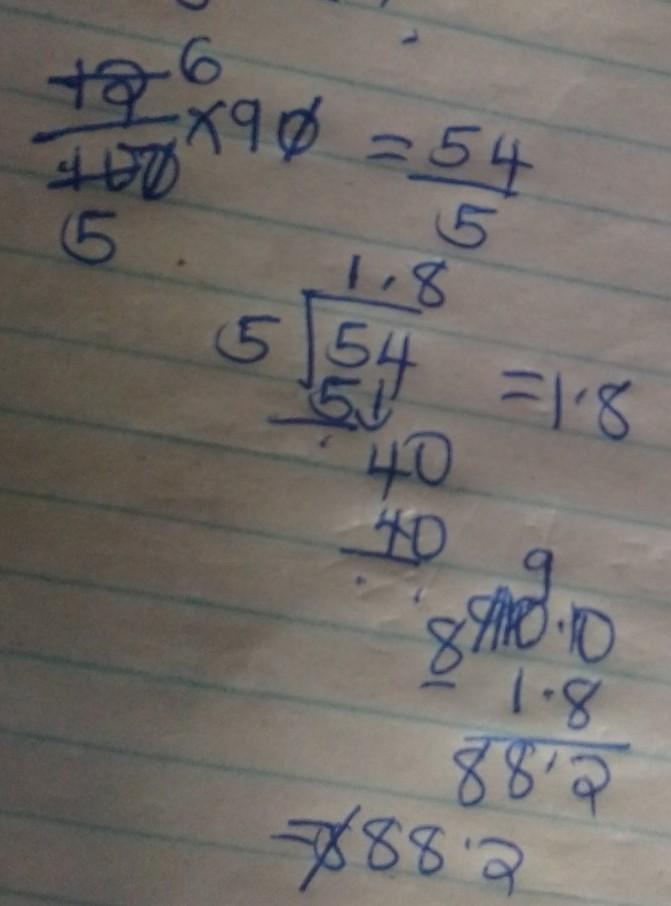 12 6
100 × 90 = 54
5 5
1.8
5 54 = 1.8
5
40
40
9
8 10.10
- 1.8
88.2
= 88.2